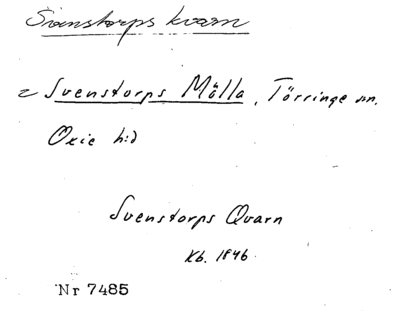 Svenstorps kvarn
= Svenstorps Mölla, Törringe sn.
Oxie h:d
Svenstorps Qvarn
Kb. 1846
Nr 7485